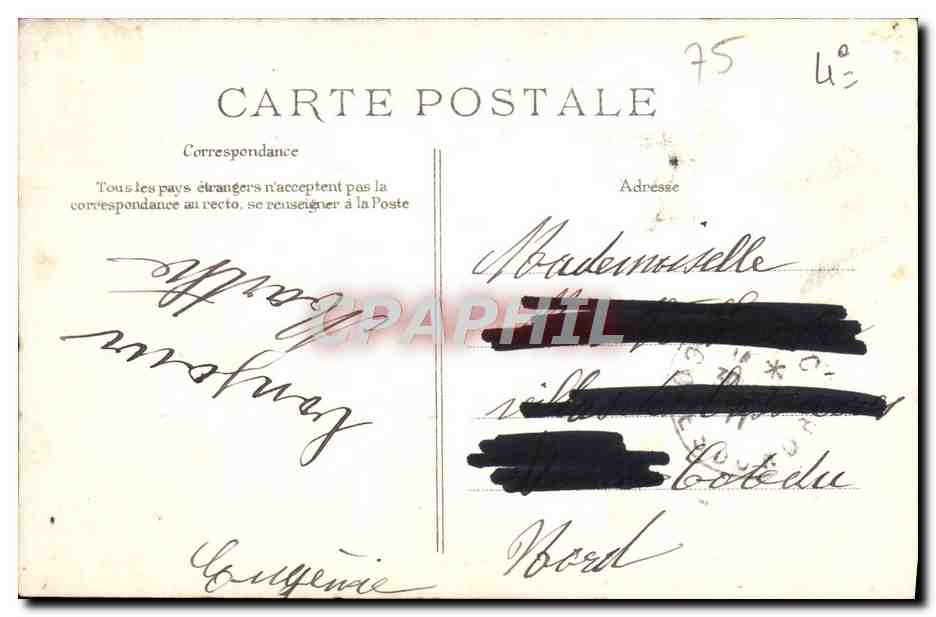 75
4°=
CARTE POSTALE
Correspondance
Tous les pays étrangers n'acceptent pas la
correspondance au recto, se renseigner à la Poste
Adresse
bonjour
Marthe
Eugénie
Mademoiselle
Cote du
Nord
CPAPHIL